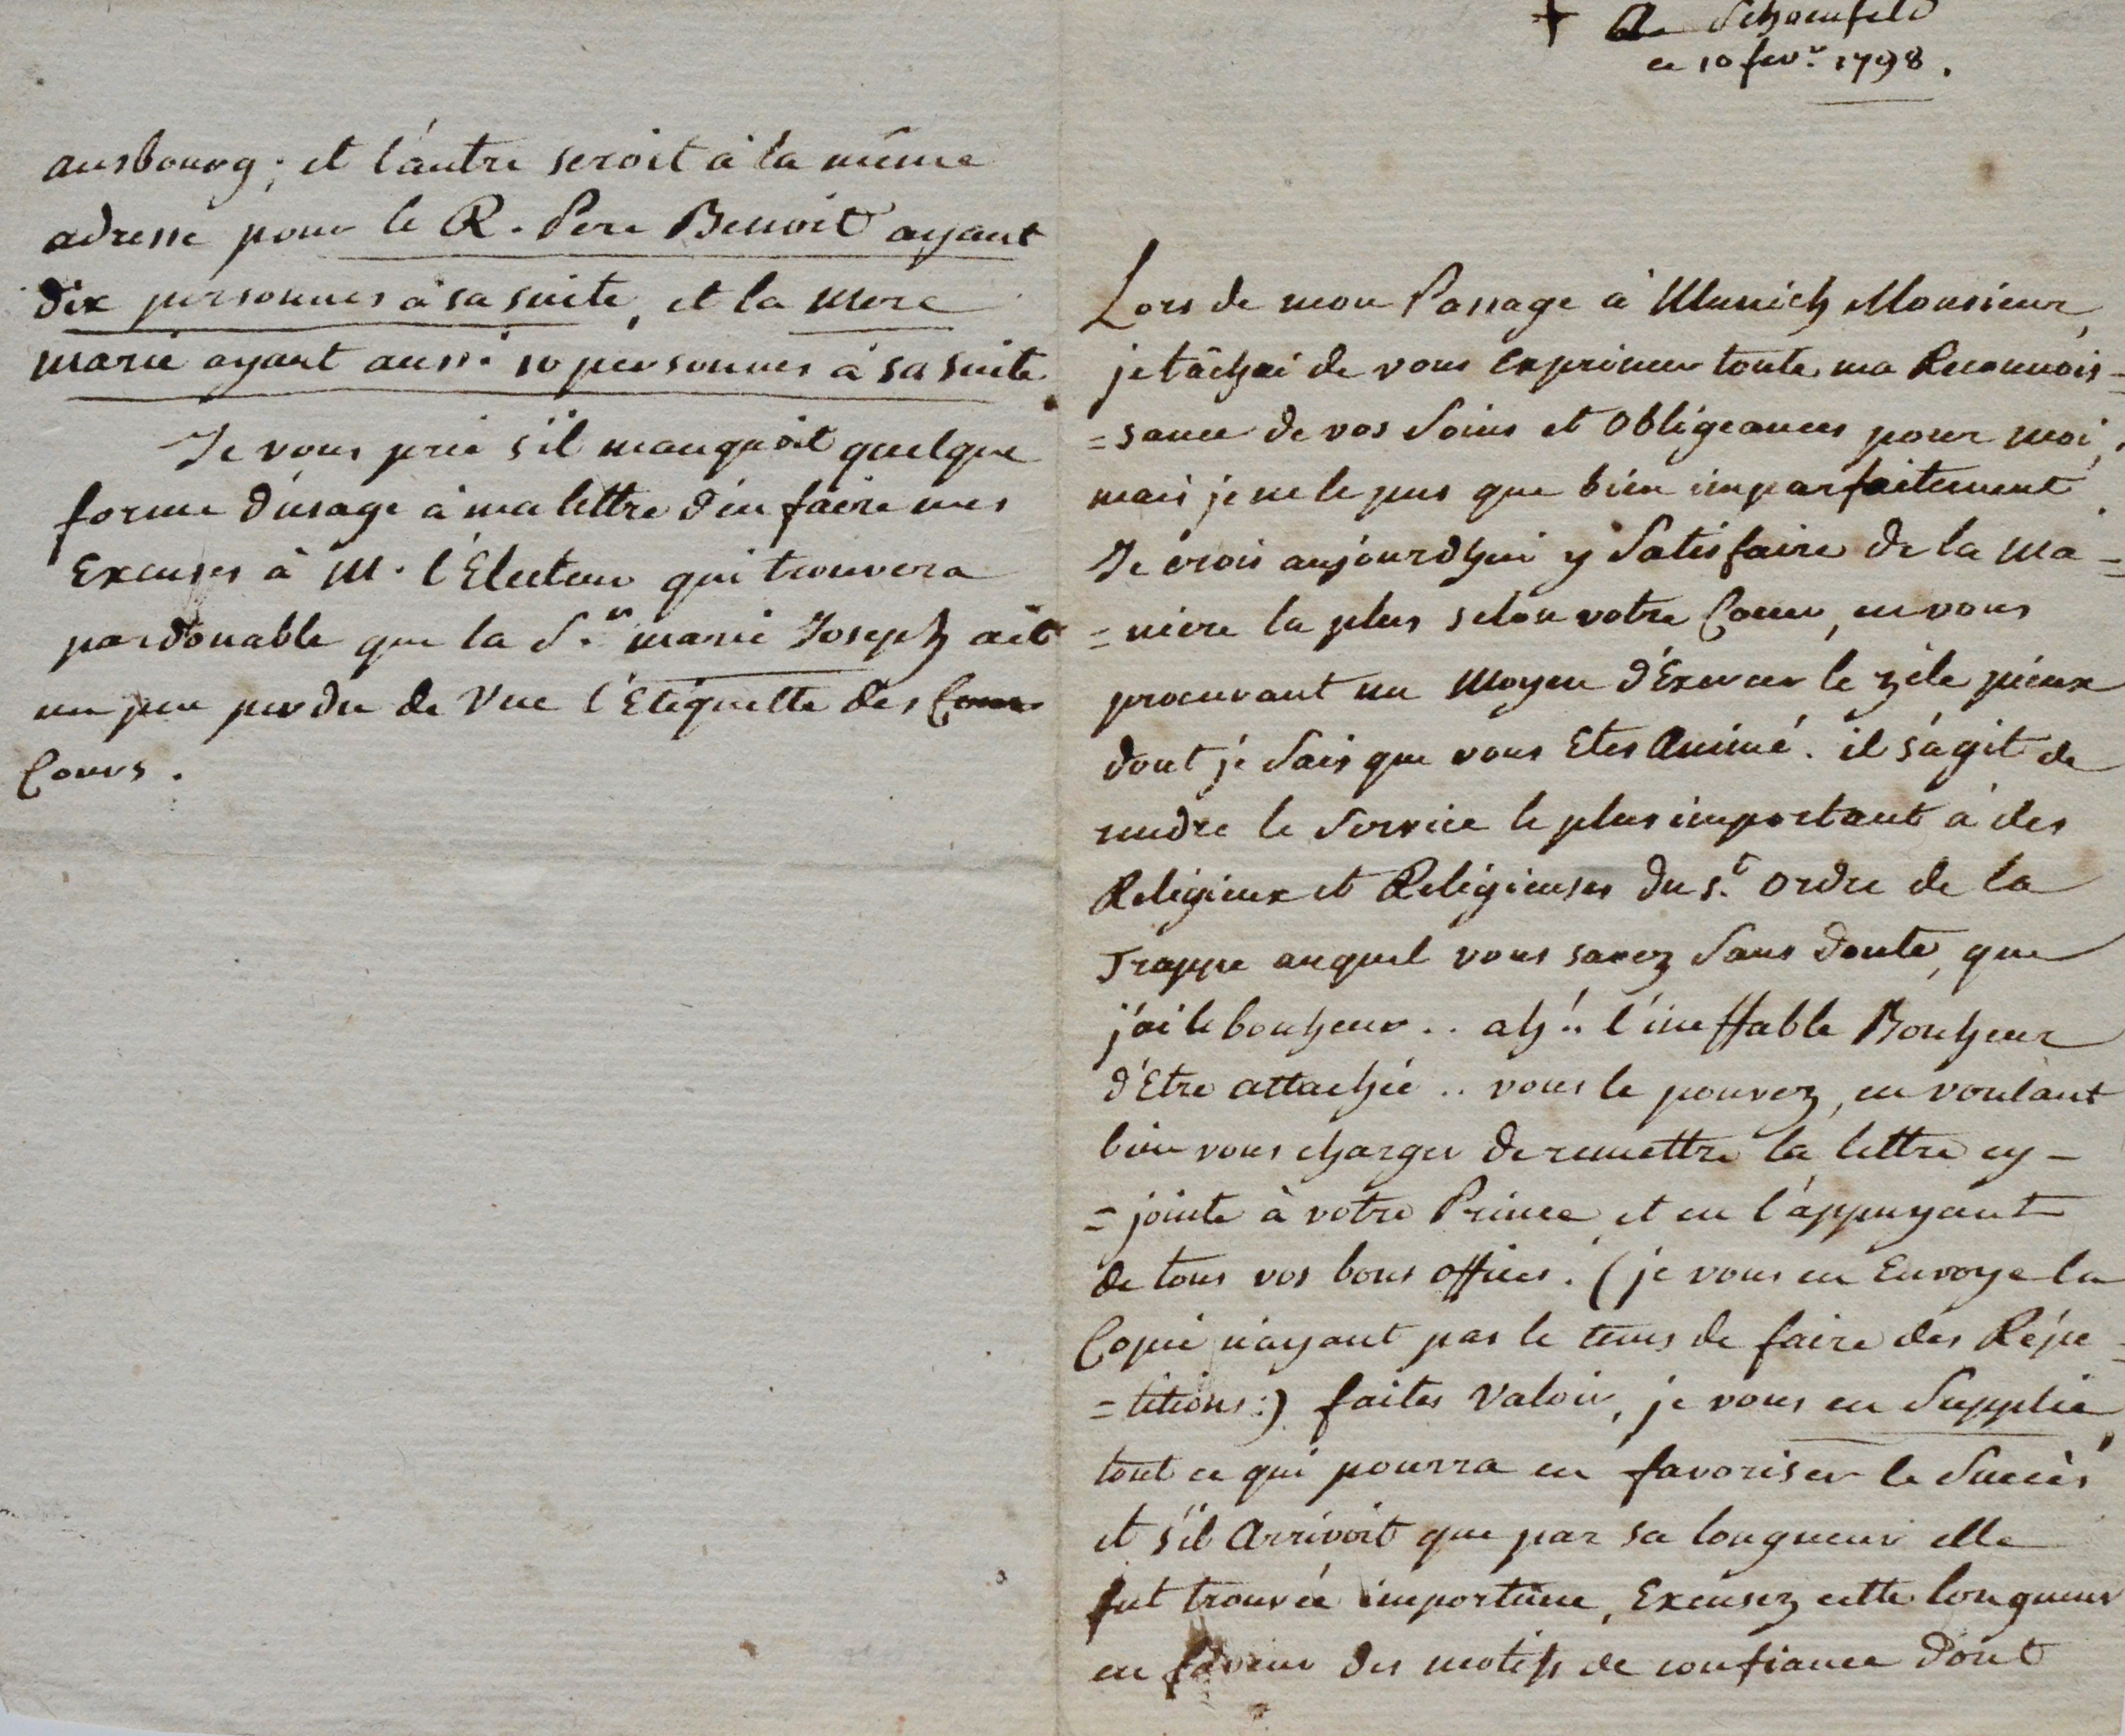 ausbourg; et l'autre seroit à la même
adresse pour le R. Pere Benoit ayant
dix personnes à sa suite, et la Mere
marie ayant aussi 10 personnes à sa suite.
Je vous prie s'il manquoit quelque
forme d'usage à ma lettre d'en faire mes
Excuses à M. l'Electeur qui trouvera
pardonable que la S.r marie Joseph ait
un peu perdu de Vue l'Etiquette des Cours
Cours.
+ A Schoenfeld
ce 10 fevr. 1798.
Lors de mon Passage à Munich Monsieur,
je tâchai de vous exprimer toute ma Reconnois-
=sance de vos Soins et Obligeances pour moi,
mais je ne le pus que bien imparfaitement.
Je crois aujourdhui y Satisfaire de la Ma-
=niere la plus selon votre Coeur, en vous
procurant un Moyen d'Exercer le zèle pieux
dont je Sais que vous Etes Animé. il s'agit de
rendre le Service le plus important à des
Religieux et Religieuses du s.t Ordre de la
Trappe auquel vous savez Sans doute, que
j'ai le bonheur.. ah!. l'ineffable Bonheur
d'Etre attachée.. vous le pouvez, en voulant
bien vous charger de remettre la lettre cy-
=jointe à votre Prince, et en l'appuyant
de tous vos bons offices. (je vous en Envoye la
Copie n'ayant pas le tems de faire des Répe=
=titions:) faites Valoir, je vous en Supplie,
tout ce qui pourra en favoriser le Succès
et s'il Arrivoit que par sa longueur elle
fut trouvée importune, Excusez cette longueur
en faveur des motifs de confiance dont